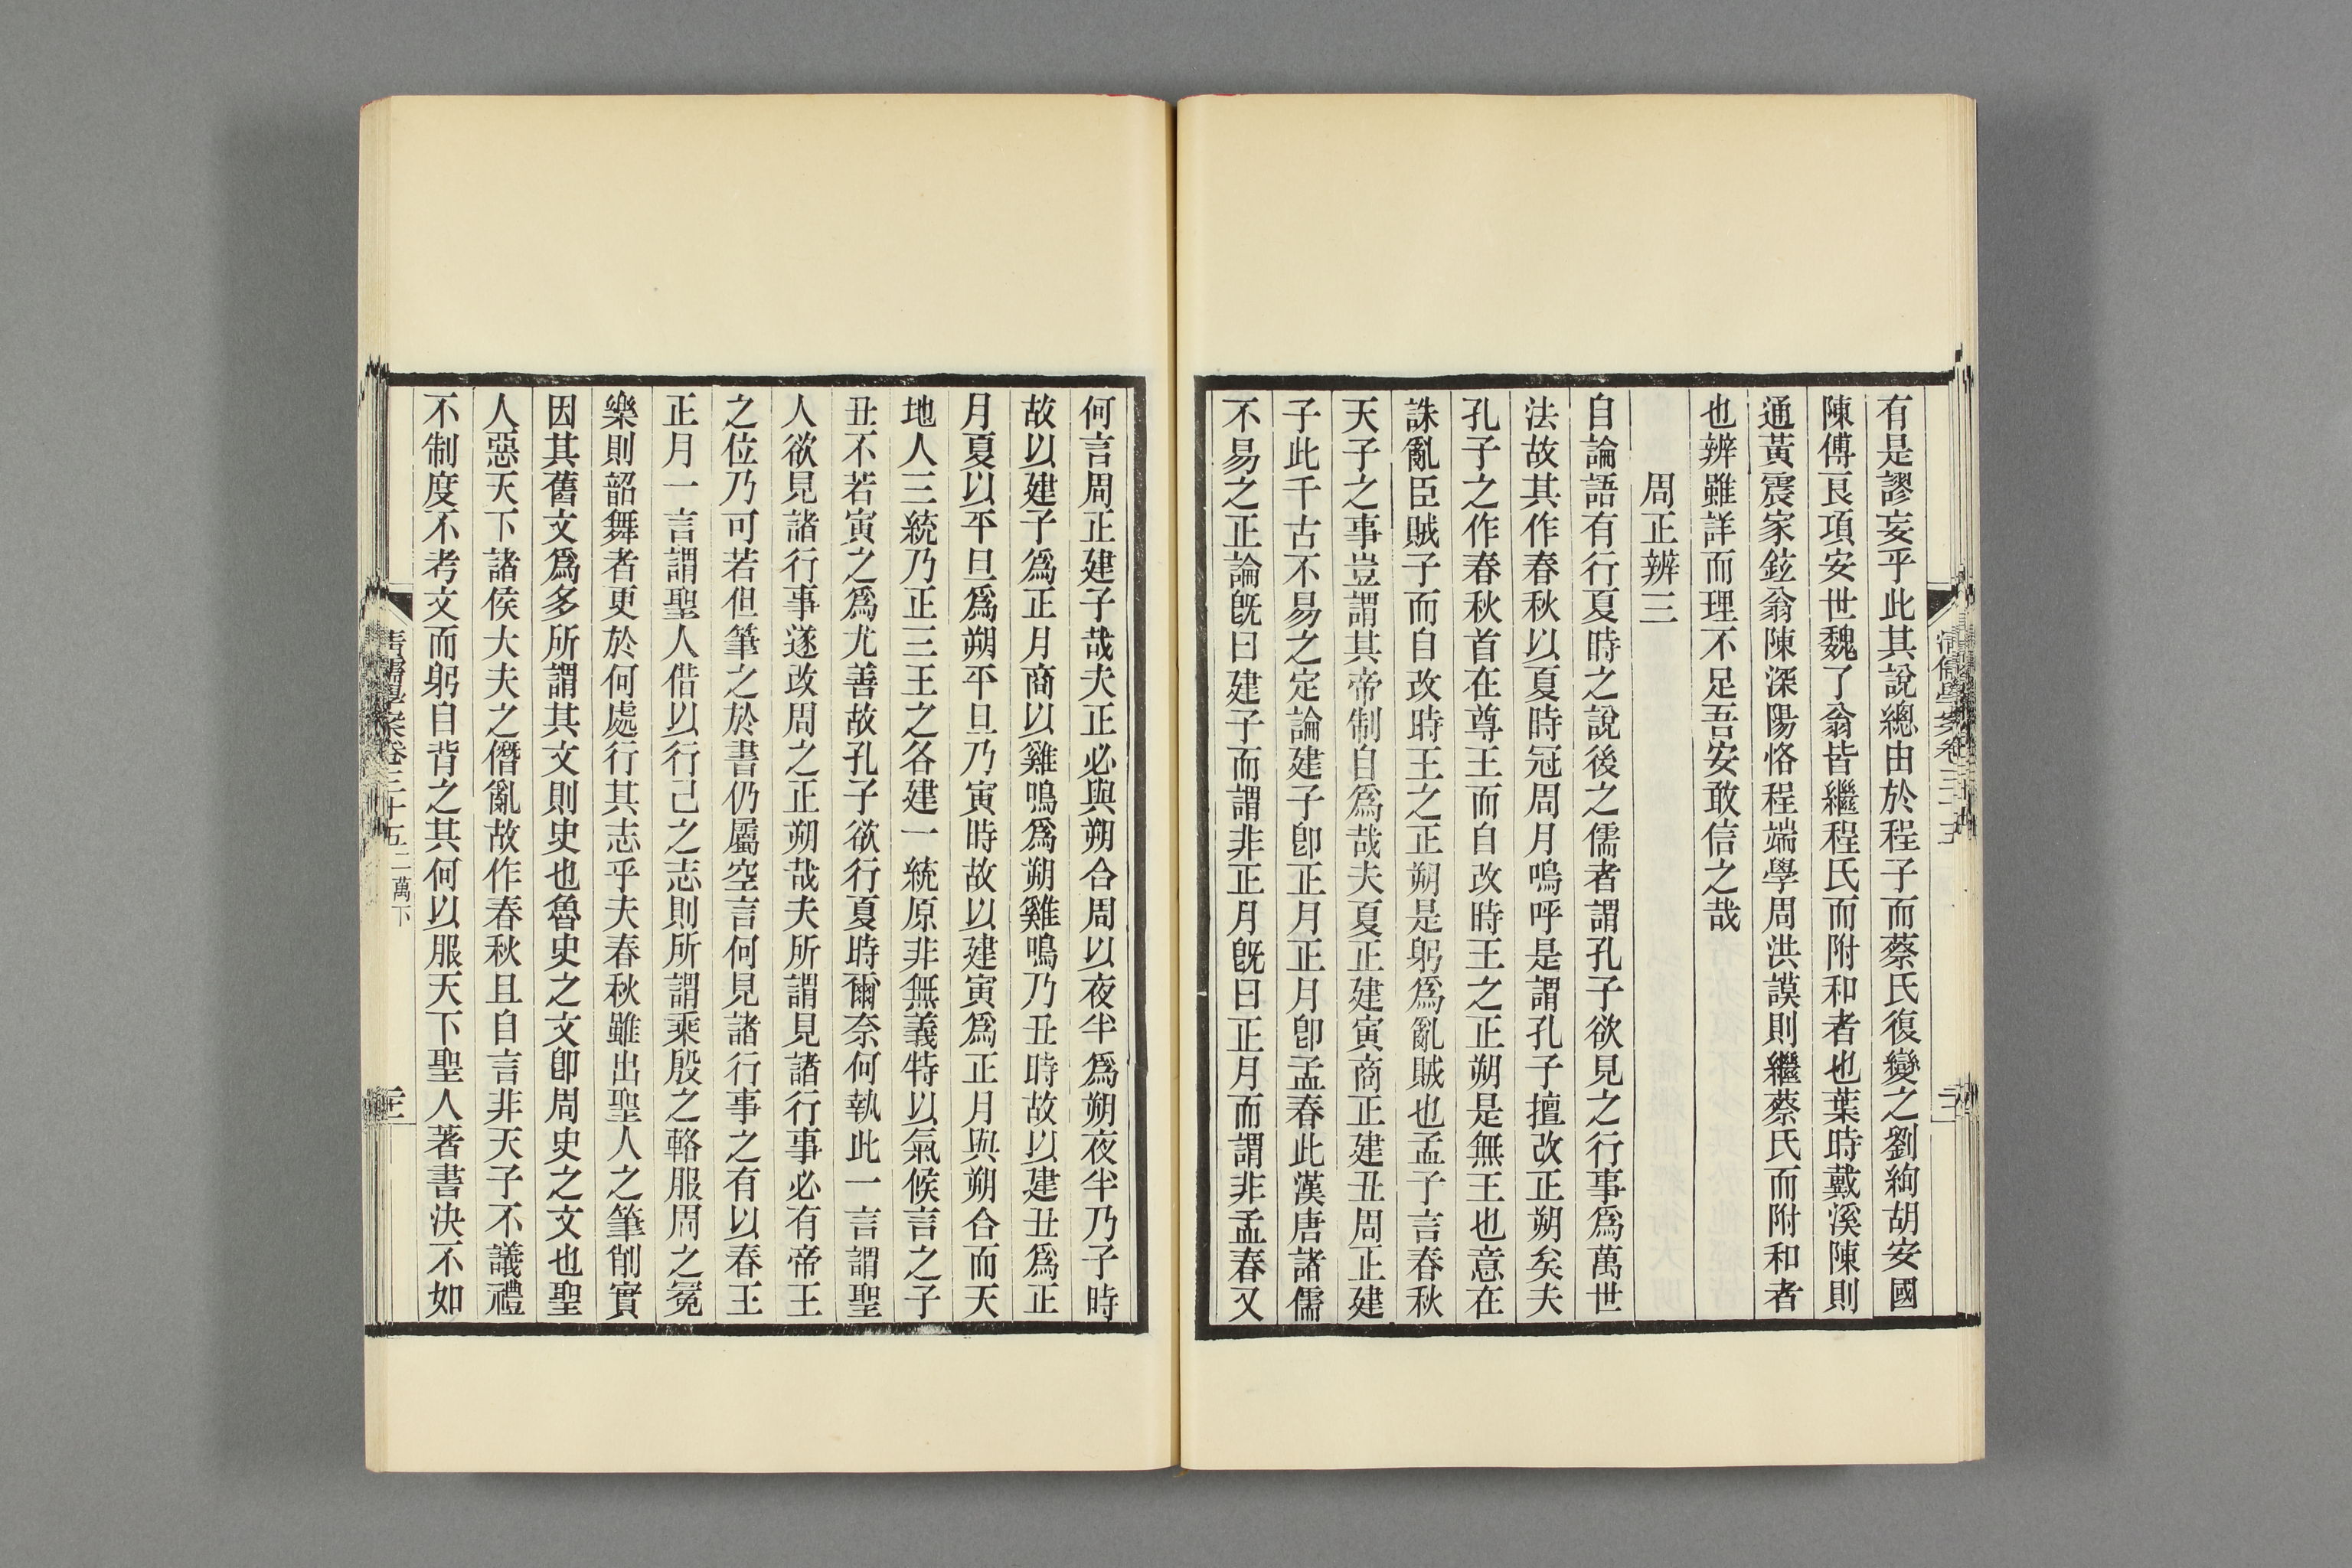 有是謬妄乎此其說總由於程子而蔡氏復變之劉絢胡安國
陳傅良項安世魏了翁皆繼程氏而附和者也葉時戴溪陳則
通黃震家鉉翁陳深陽恪程端學周洪謨則繼蔡氏而附和者
也辨雖詳而理不足吾安敢信之哉
周正辨三
自論語有行夏時之說後之儒者謂孔子欲見之行事爲萬世
法故其作春秋以夏時冠周月嗚呼是謂孔子擅改正朔矣夫
孔子之作春秋首在尊王而自改時王之正朔是無王也意在
誅亂臣賊子而自改時王之正朔是躬爲亂賊也孟子言春秋
天子之事豈謂其帝制自爲哉夫夏正建寅商正建丑周正建
子此千古不易之定論建子卽正月正月卽孟春此漢唐諸儒
不易之正論旣曰建子而謂非正月旣曰正月而謂非孟春又
何言周正建子哉夫正必與朔合周以夜半爲朔夜半乃子時
故以建子爲正月商以雞鳴爲朔雞鳴乃丑時故以建丑爲正
月夏以平旦爲朔平旦乃寅時故以建寅爲正月與朔合而天
地人三統乃正三王之各建一統原非無義特以氣候言之子
丑不若寅之爲尤善故孔子欲行夏時爾奈何執此一言謂聖
人欲見諸行事遂改周之正朔哉夫所謂見諸行事必有帝王
之位乃可若但筆之於書仍屬空言何見諸行事之有以春王
正月一言謂聖人借以行己之志則所謂乘殷之輅服周之冕
樂則韶舞者更於何處行其志乎夫春秋雖出聖人之筆削實
因其舊文爲多所謂其文則史也魯史之文卽周史之文也聖
人惡天下諸侯大夫之僭亂故作春秋且自言非天子不議禮
不制度不考文而躬自背之其何以服天下聖人著書決不如
清儒學案卷三十五 二萬下